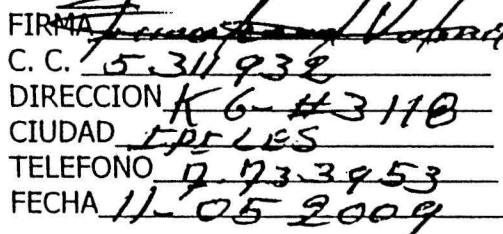 FIRMA
C. C. 5.311932
DIRECCION K 6- #3118
CIUDAD IPILES
TELEFONO 7.733953
FECHA 11-05 2009